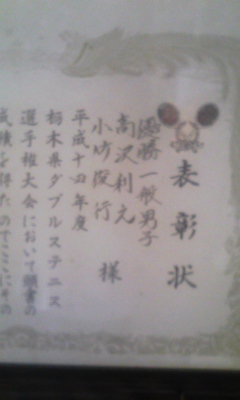 表彰状
優勝 一般男子
高沢利光
小坊俊行 様
平成十四年度
栃木県ダブルステニス
選手権大会において頭書の
成績を得たのでここにその